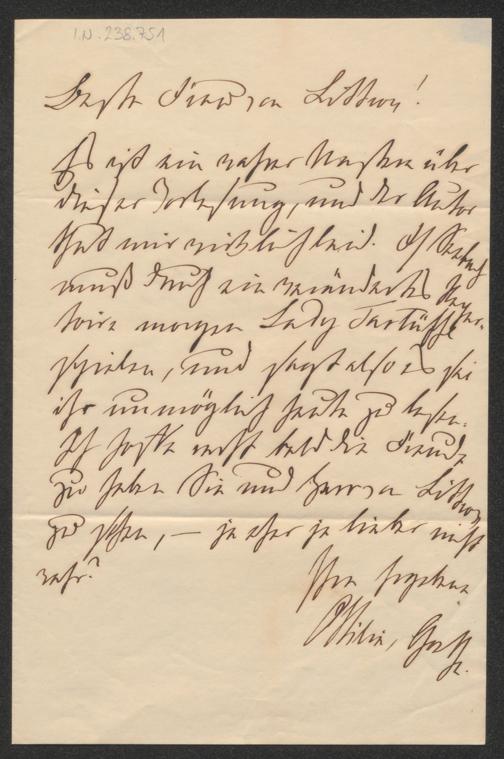 I.N. 238.751
Beste Frau von Littrow!
Es ist ein wahrer Unstern über
dieser Vorlesung, und der Autor
thut mir wirklich leid. Die Seebach
muß durch ein verändertes Reper-
toire morgen Lady Tartüffe
spielen, und sagt also es sei
ihr unmöglich heute zu lesen.
Ich hoffe recht bald die Freude
zu haben Sie und Herrn von Littrow
zu sehen, — je eher je lieber nicht
wahr?
Ihre ergebene
Ottilie, Goethe